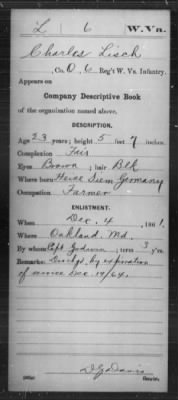 L | 6 | W. Va.
Charles Lisch
Co. O, 6 Reg't W. Va. Infantry.
Appears on
Company Descriptive Book
of the organization named above.
DESCRIPTION.
Age 23 years; height 5 feet 7 inches.
Complexion Fair
Eyes Brown; hair Blk
Where born Hesse Germany
Occupation Farmer
ENLISTMENT.
When Dec. 4, 1861.
Where Oakland, Md.
By whom Capt Godwin; term 3 y'rs.
Remarks: Dischgd by expiration
of service Dec. 14/64.
Copyist.